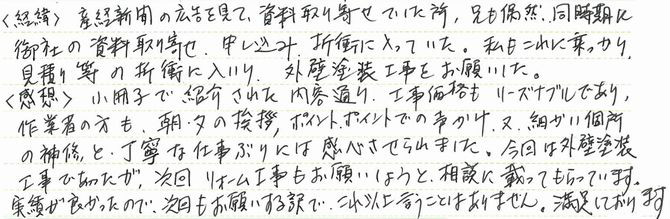 <経緯> 産経新聞の広告を見て、資料取り寄せていた所、兄も偶然、同時期に
御社の資料取り寄せ、申し込み、折衝に入っていた。私もこれに乗っかり、
見積り等の折衝に入いり、外壁塗装工事をお願いした。
<感想> 小冊子で紹介された内容通り、工事価格もリーズナブルであり、
作業者の方も、朝・夕の挨拶、ポイントポイントでの声かけ、又、細かい個所
の補修と、丁寧な仕事ぶりには感心させられました。今回は外壁塗装
工事であったが、次回リォーム工事もお願いしようと、相談に載ってもらっています。
実績が良かったので、次回もお願いする訳で、これ以上言うことはありません。満足しております